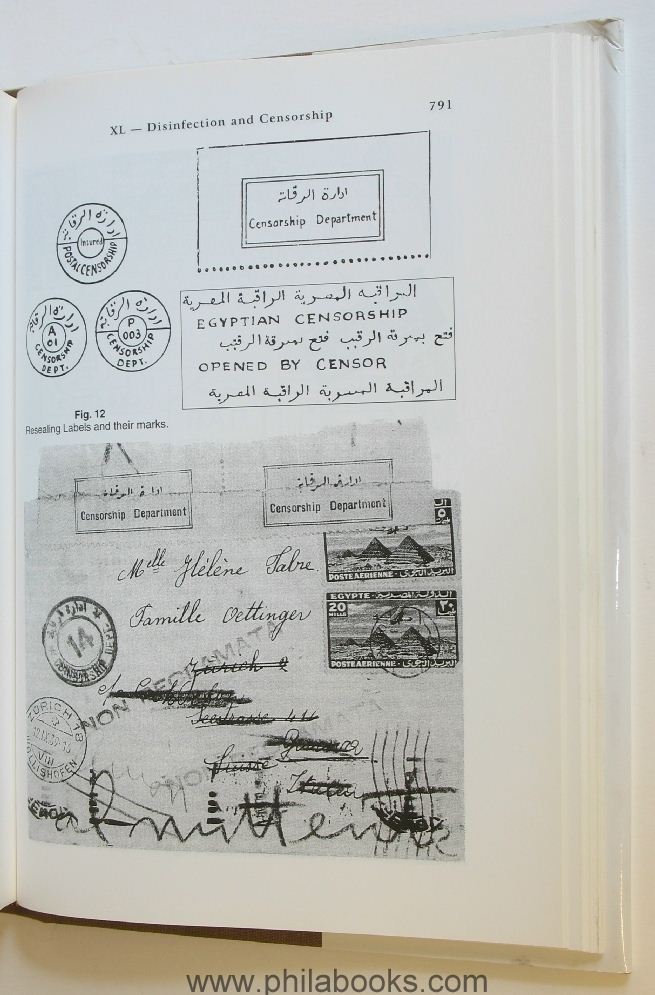 XL — Disinfection and Censorship
791
ادارة الرقابة
Censorship Department
ادارة الرقابة
Insured
POSTAL CENSORSHIP
ادارة الرقابة
A
01
CENSORSHIP
DEPT.
ادارة الرقابة
P
003
CENSORSHIP
DEPT.
EGYPTIAN CENSORSHIP
OPENED BY CENSOR
Fig. 12
Resealing Labels and their marks.
ادارة الرقابة
Censorship Department
ادارة الرقابة
Censorship Department
Melle Hélène Fabre.
Famille Oettinger
Zürich 2
Seestrasse 411
Suisse
Genova
POSTE AERIENNE
EGYPTE
20
MILLS
POSTE AERIENNE
14
CENSORSHIP
NON RECLAMATA
ZÜRICH 18
www.philabooks.com